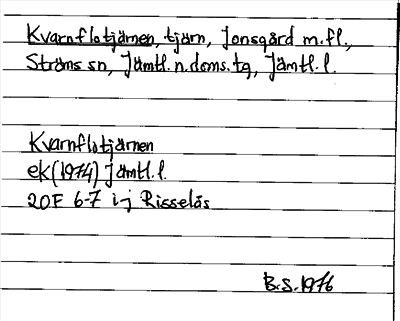 Kvarnflotjärnen, tjärn, Jonsgård m.fl.,
Ströms sn, Jämtl.n.doms.tg, Jämtl.l.
Kvarnflotjärnen
ek(1974) Jämtl.l.
20F 6-7 i-j Risselås
B.S.1976